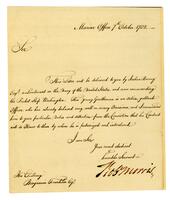 Marine Office 7th October 1782.
Sir
This Letter will be delivered to you by Joshua Barney
Esqr. a Lieutenant in the Navy of the United States and now commanding
the Packet Ship Washington. This young Gentleman is an active gallant
Officer, who has already behaved very well on many Occasions, and I recommend
him to your particular Notice and Attention from the Conviction that his Conduct
will do Honor to those by whom he is patronized and introduced.
I am Sir
Your most obedient
humble Servant
Robt Morris
His Excellency
Benjamin Franklin Esqr.